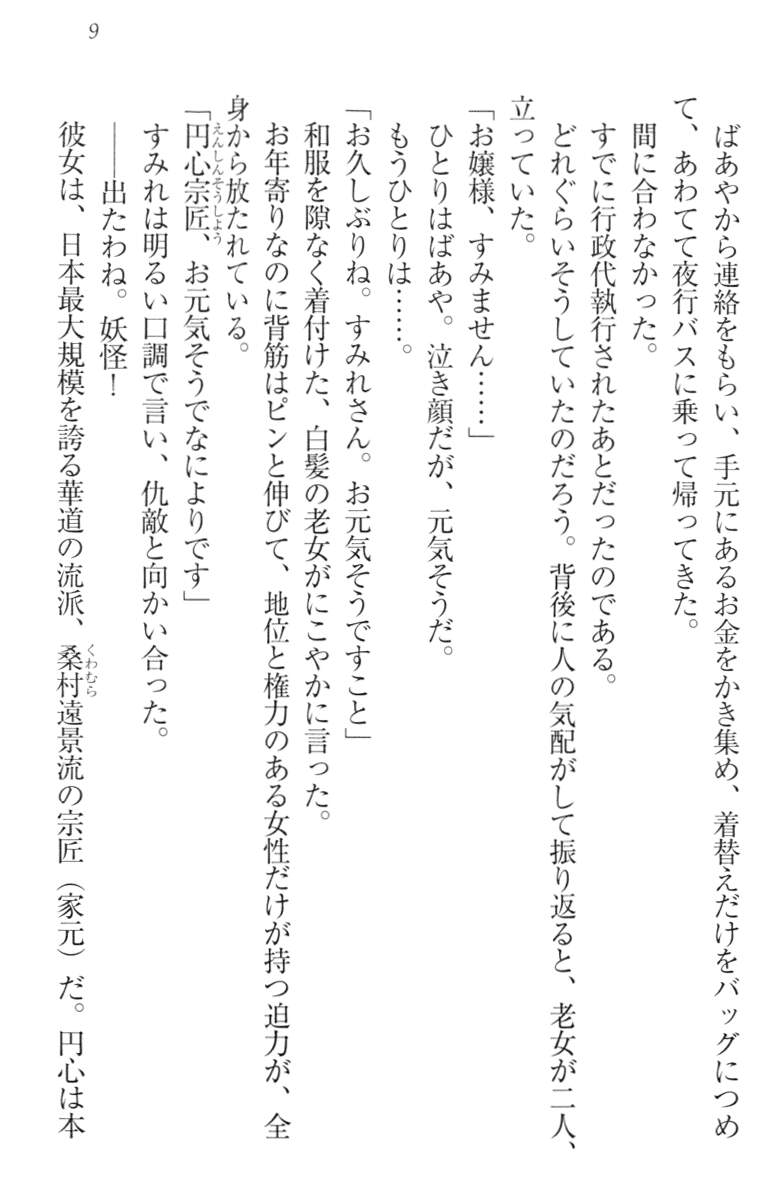 9
ばあやから連絡をもらい、手元にあるお金をかき集め、着替えだけをバッグにつめ
て、あわてて夜行バスに乗って帰ってきた。
間に合わなかった。
すでに行政代執行されたあとだったのである。
どれぐらいそうしていたのだろう。背後に人の気配がして振り返ると、老女が二人、
立っていた。
「お嬢様、すみません……」
ひとりはばあや。泣き顔だが、元気そうだ。
もうひとりは……。
「お久しぶりね。すみれさん。お元気そうですこと」
和服を隙なく着付けた、白髪の老女がにこやかに言った。
お年寄りなのに背筋はピンと伸びて、地位と権力のある女性だけが持つ迫力が、全
身から放たれている。
「円心宗匠、お元気そうでなによりです」
えんしんそうしよう
すみれは明るい口調で言い、仇敵と向かい合った。
――出たわね。妖怪！
彼女は、日本最大規模を誇る華道の流派、桑村遠景流の宗匠（家元）だ。円心は本
くわむら